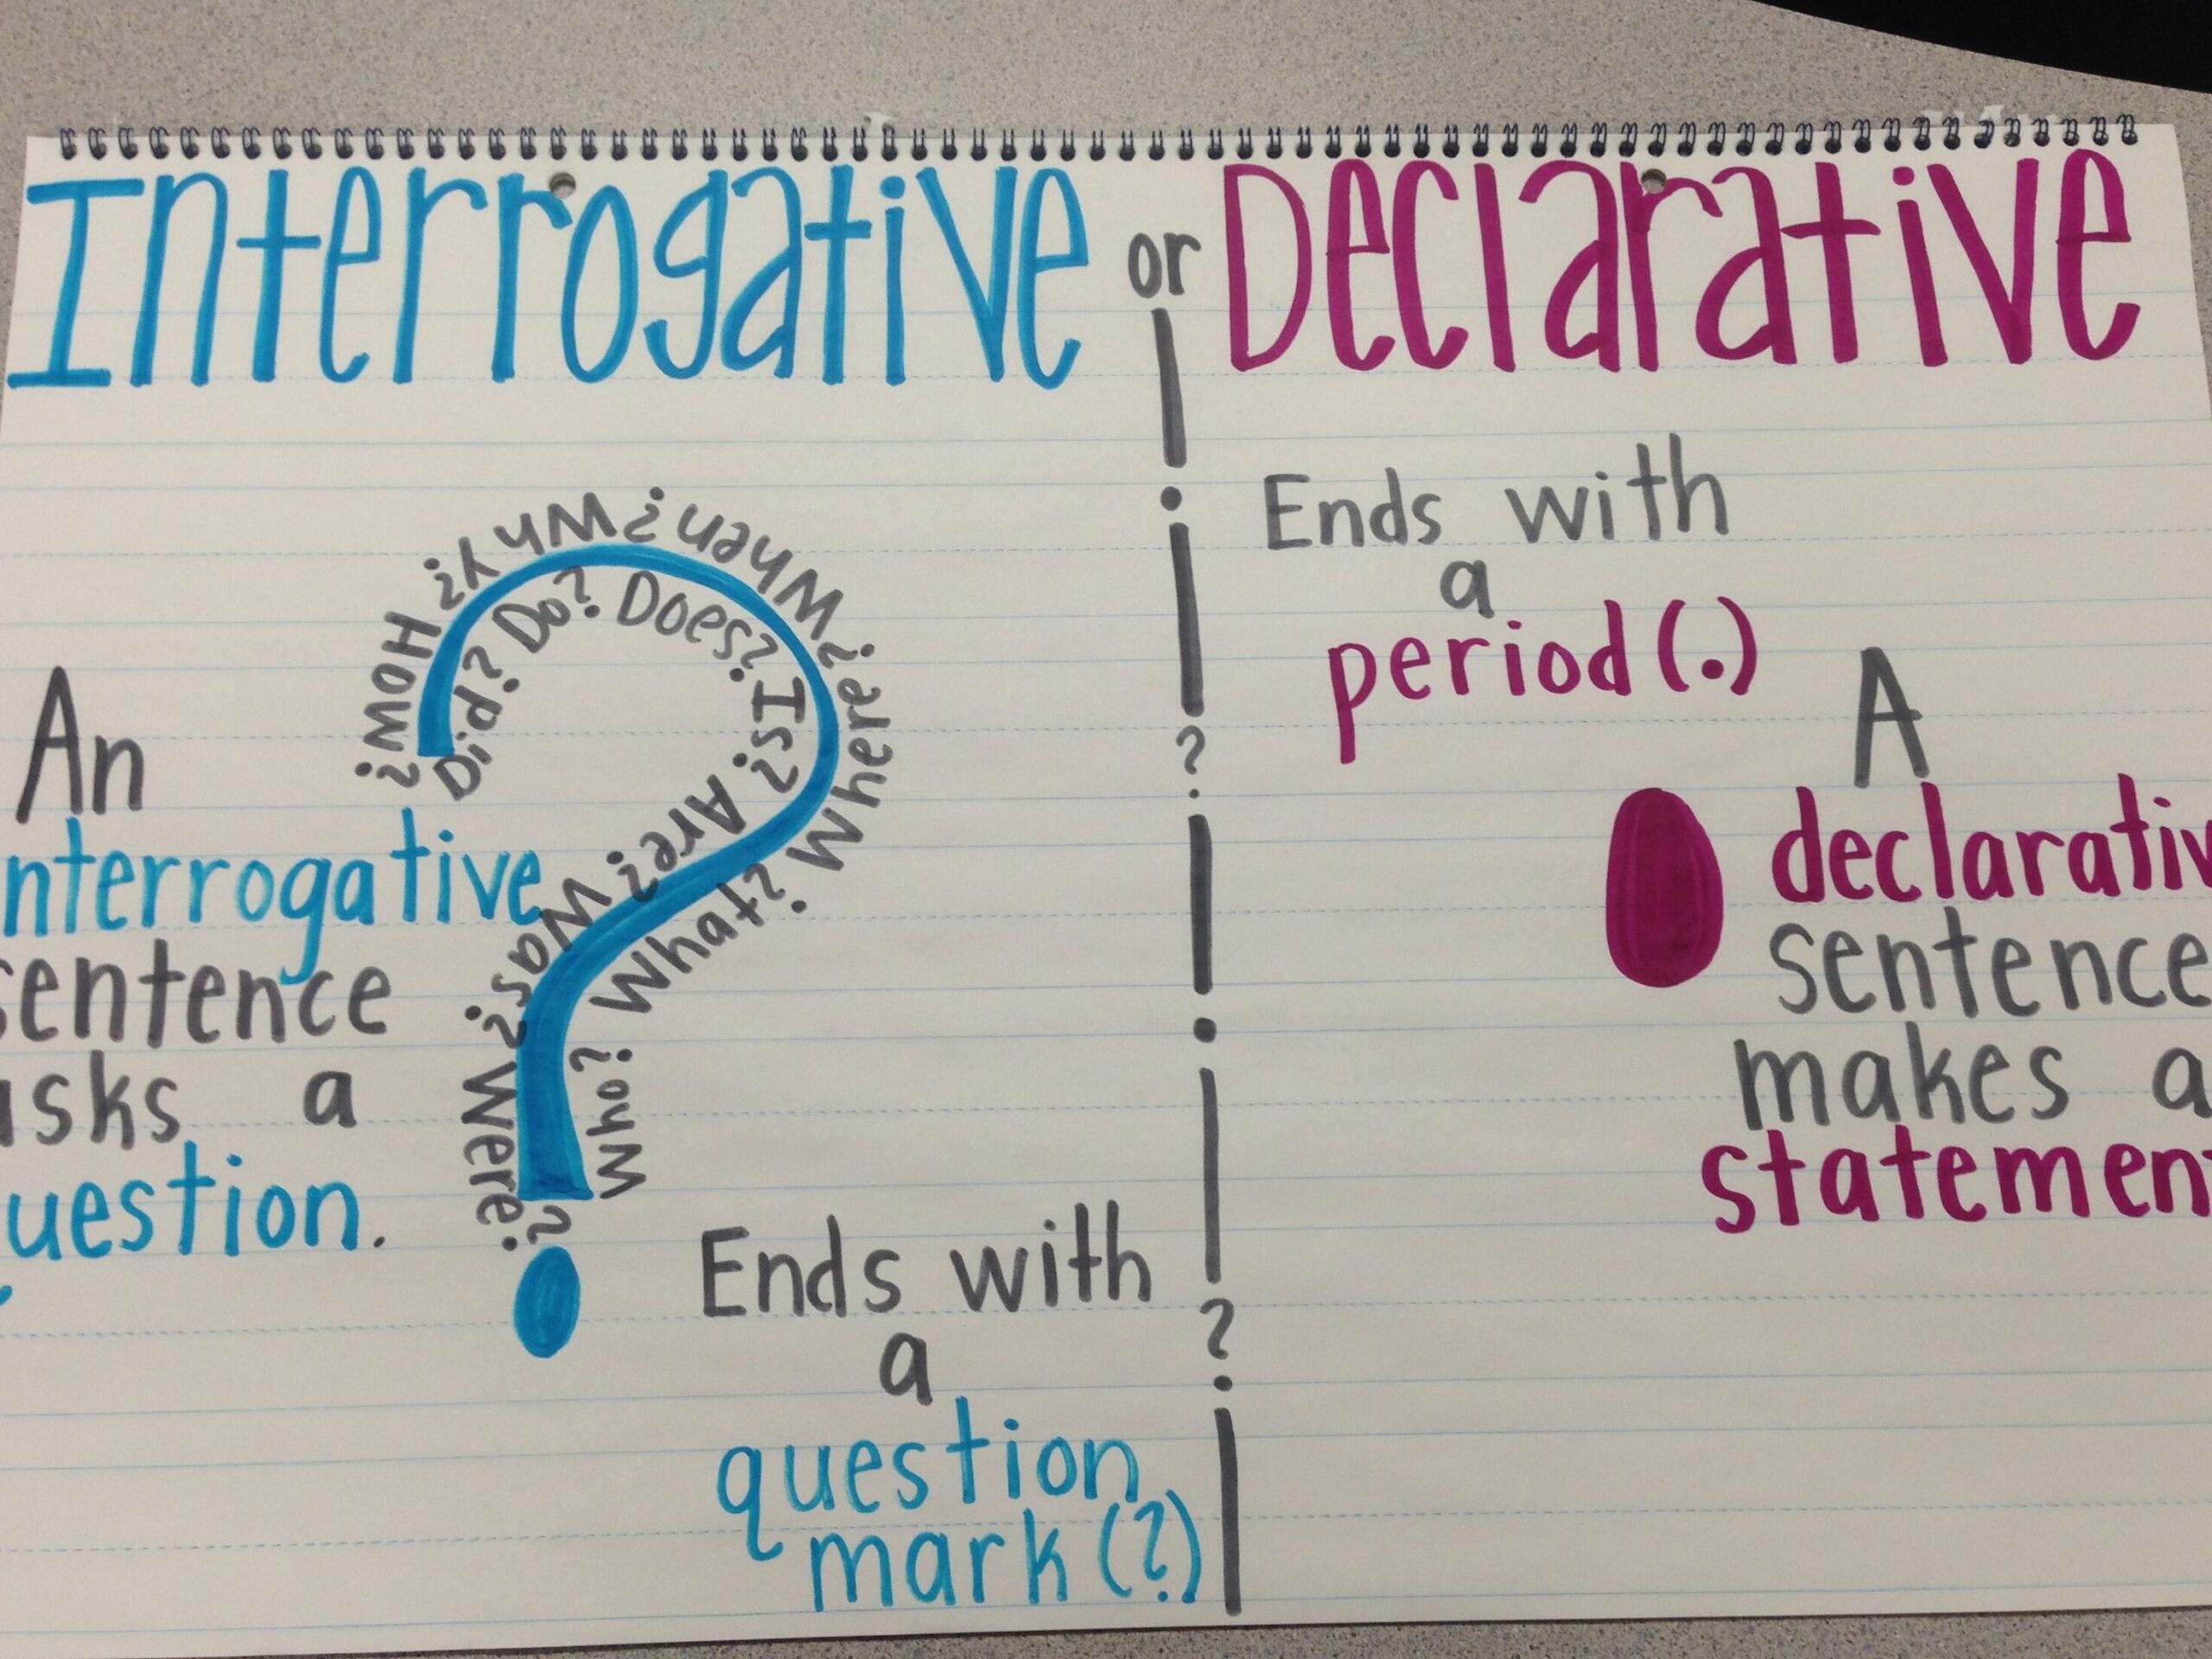 Interrogative or Declarative
An
nterrogative
sentence
asks a
question.
Who? What? Where? When? Why? How?
Did? Do? Does? Is? Are? Was? Were?
Ends with
a
question
mark (?)
?
?
Ends with
a
period (.)
A
declarativ
sentence
makes a
statemen